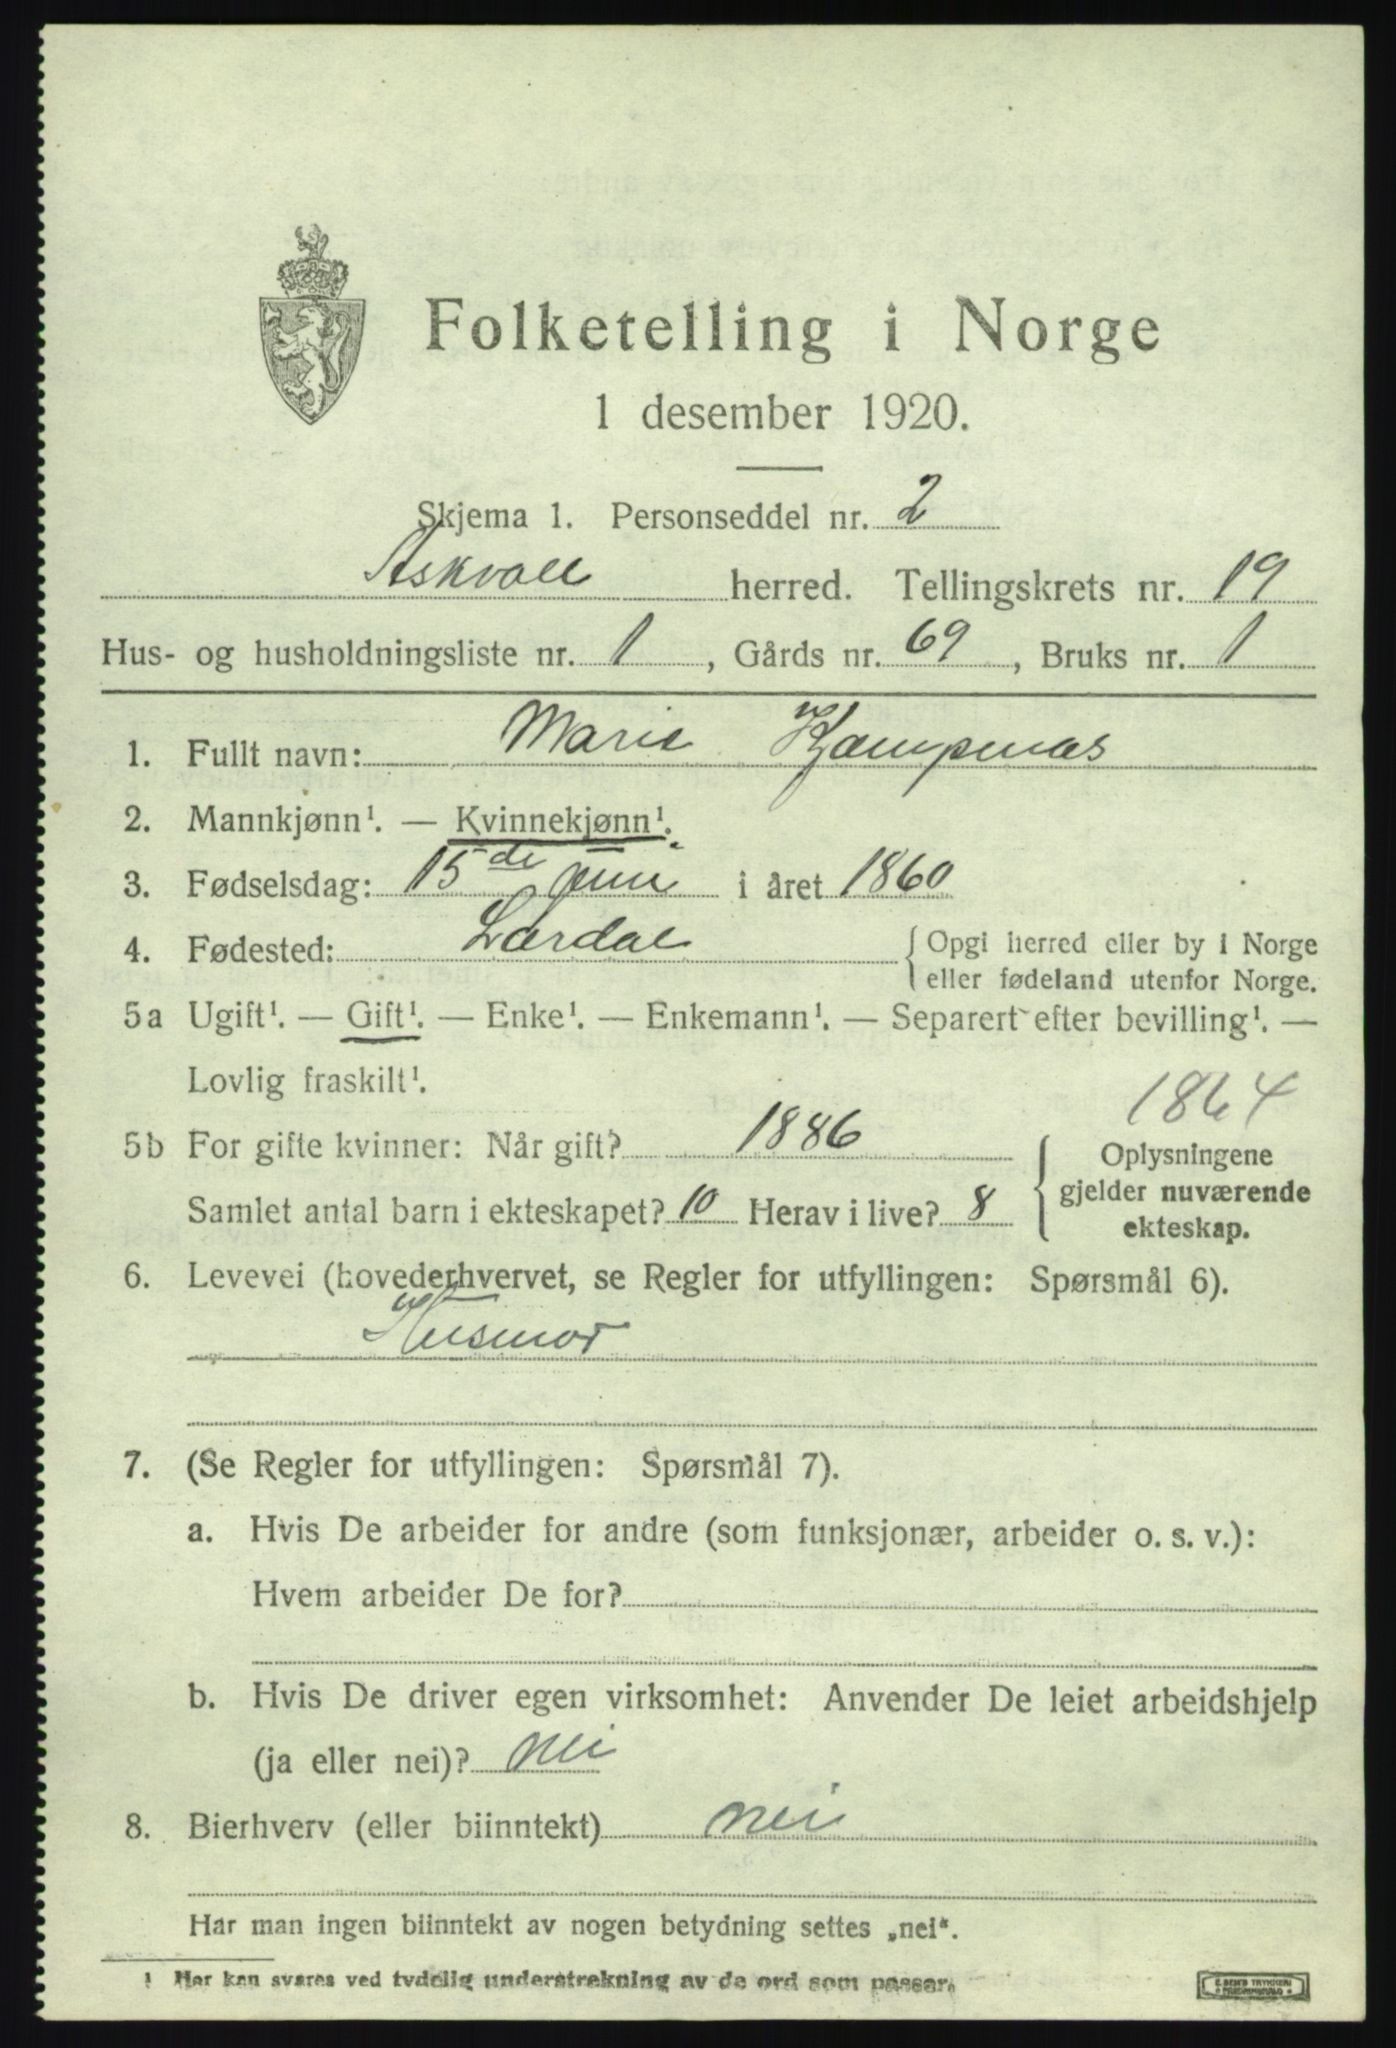 Folketelling i Norge
1 desember 1920.
Skjema 1. Personseddel nr. 2
Askvoll herred. Tellingskrets nr. 19
Hus- og husholdningsliste nr. 1, Gårds nr. 69, Bruks nr. 1
1. Fullt navn: Marie Kampenæs
2. Mannkjønn¹. — Kvinnekjønn¹.
3. Fødselsdag: 15de juni i året 1860
4. Fødested: Lærdal { Opgi herred eller by i Norge
eller fødeland utenfor Norge.
5a Ugift¹. — Gift¹. — Enke¹. — Enkemann¹. — Separert efter bevilling¹. —
Lovlig fraskilt¹.
1864
5b For gifte kvinner: Når gift? 1886
Samlet antal barn i ekteskapet? 10 Herav i live? 8
Oplysningene
gjelder nuværende
ekteskap.
6. Levevei (hovederhvervet, se Regler for utfyllingen: Spørsmål 6).
Husmor
7. (Se Regler for utfyllingen: Spørsmål 7).
a. Hvis De arbeider for andre (som funksjonær, arbeider o. s. v.):
Hvem arbeider De for?
b. Hvis De driver egen virksomhet: Anvender De leiet arbeidshjelp
(ja eller nei)? nei
8. Bierhverv (eller biinntekt) nei
Har man ingen biinntekt av nogen betydning settes „nei“.
1 Her kan svares ved tydelig understrekning av de ord som passer.